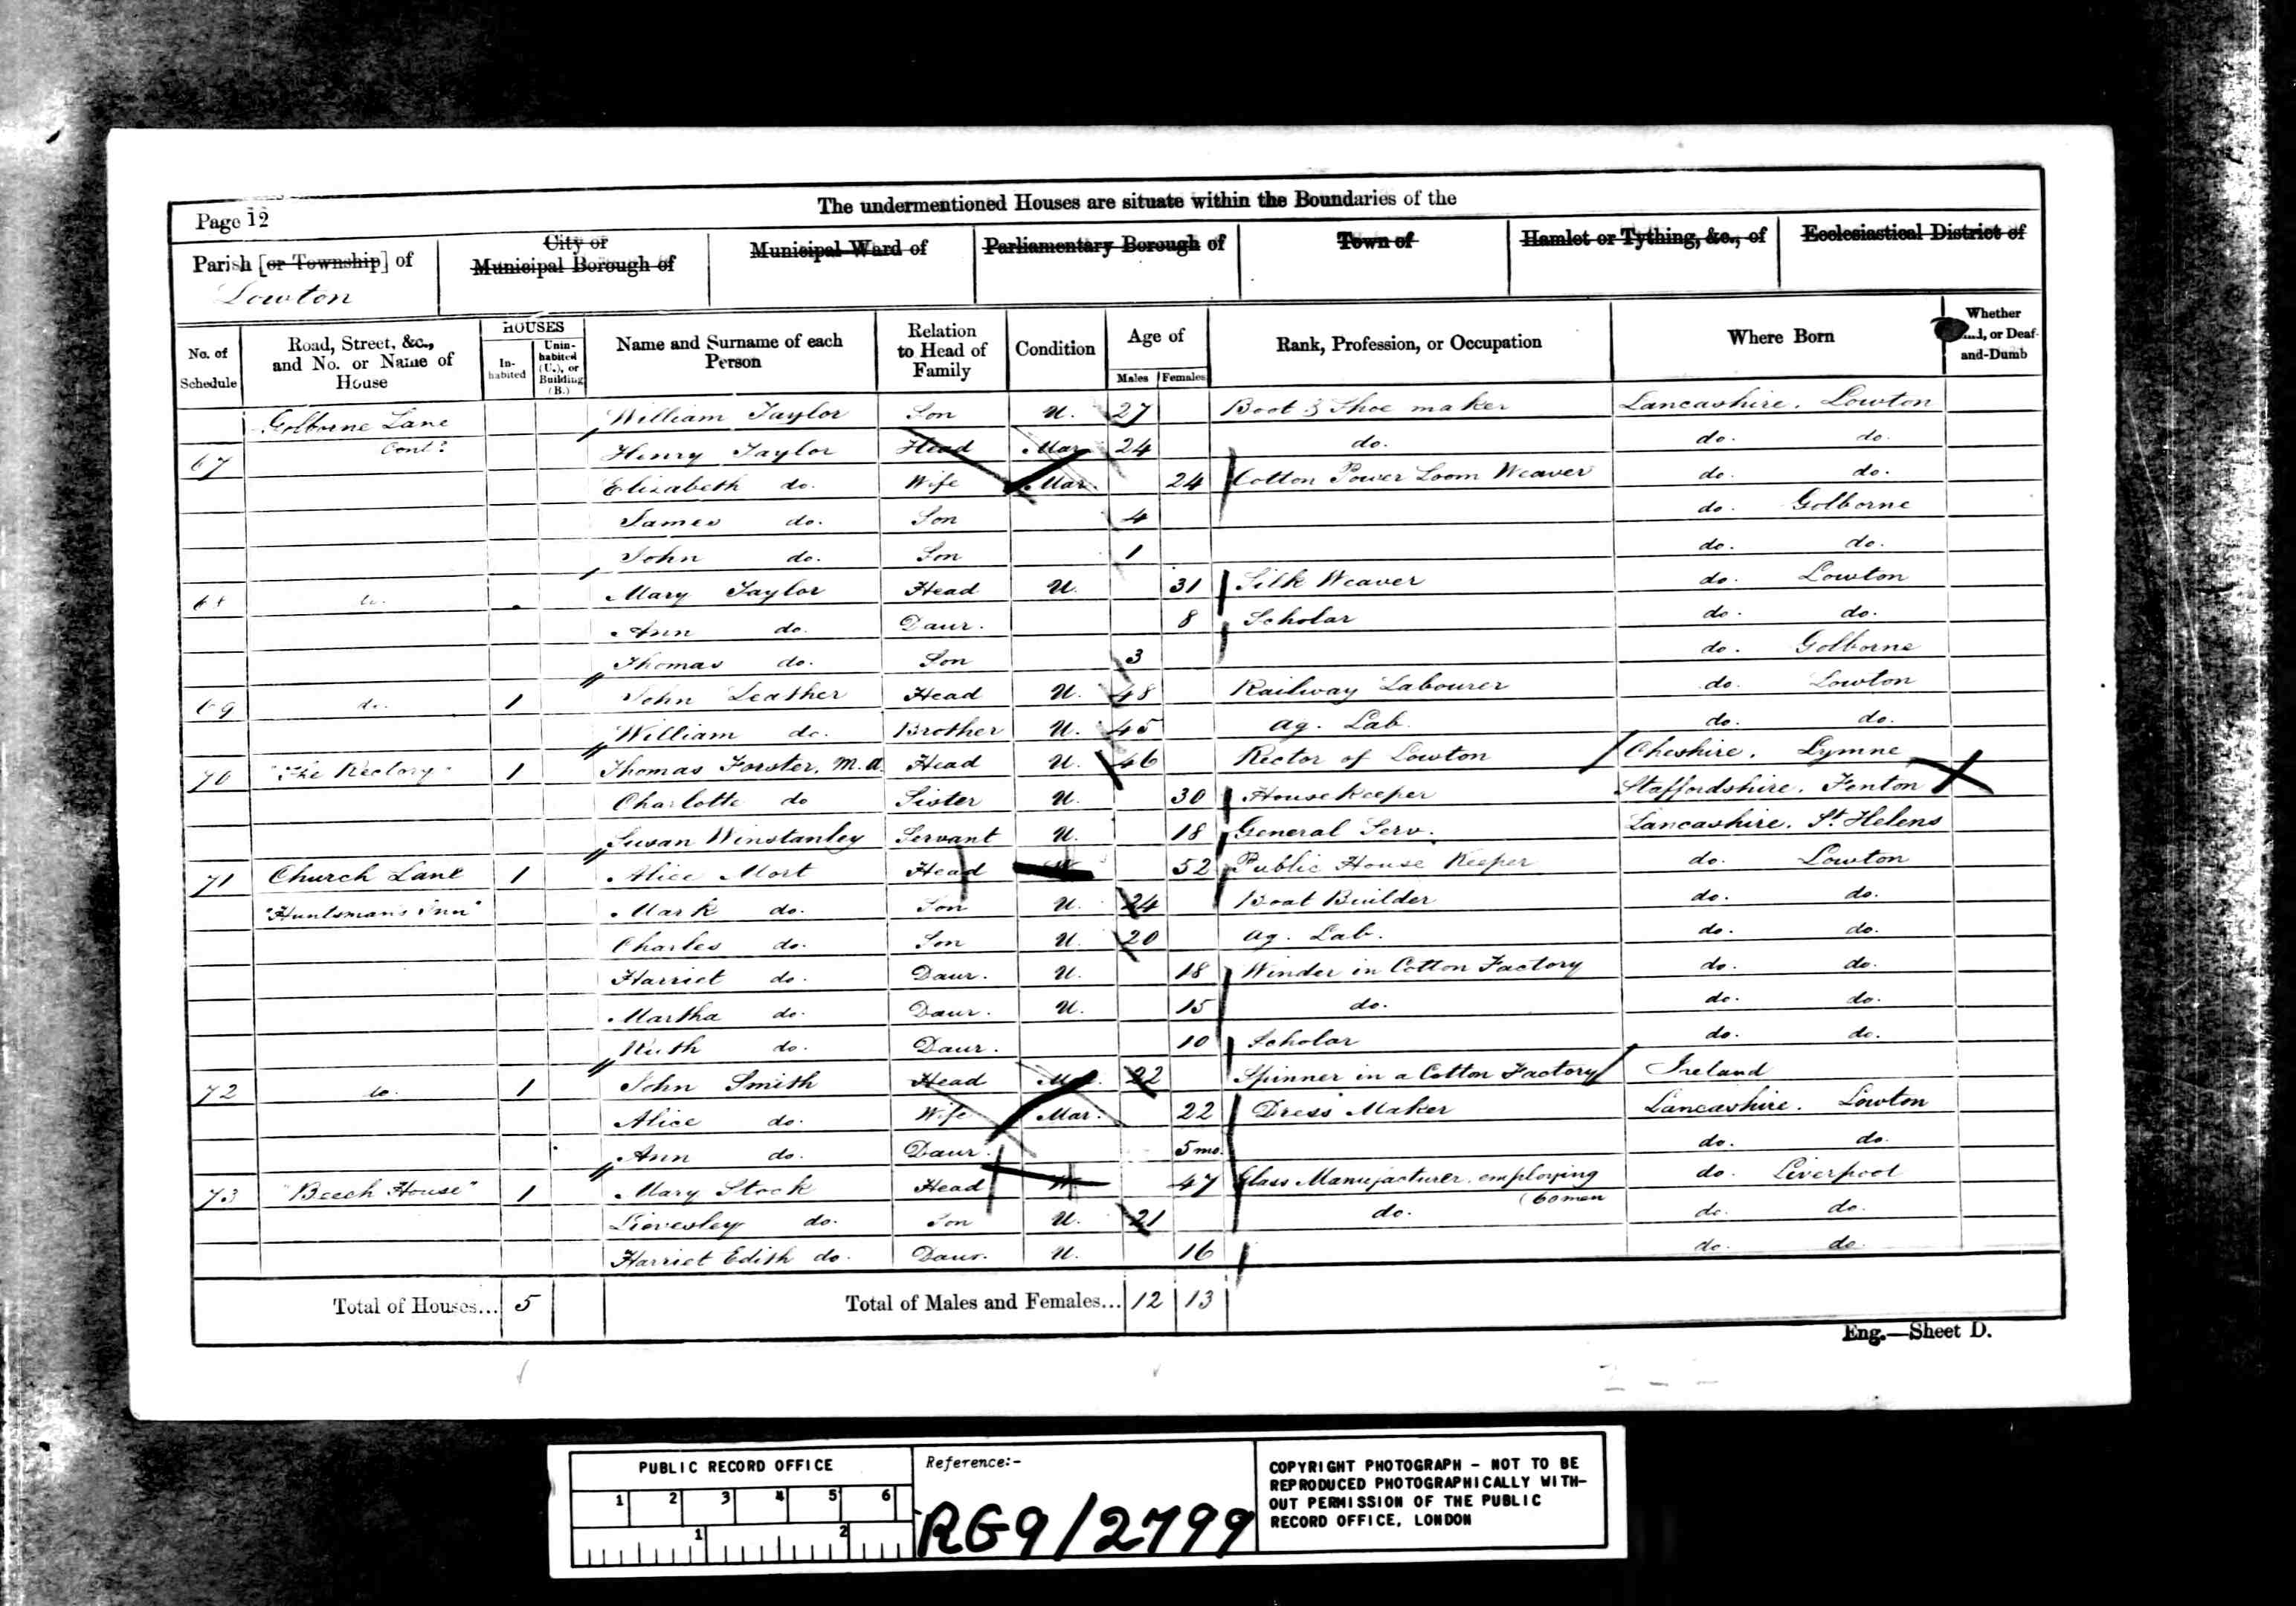 The undermentioned Houses are situate within the Boundaries of the
Page 12
Parish [or Township] of
Lowton
City or
Municipal Borough of
Municipal Ward of
Parliamentary Borough of
Town of
Hamlet or Tything, &c., of
Ecclesiastical District of
No. of Schedule
Road, Street, &c., and No. or Name of House
HOUSES
In-habited
Unin-habited (U.), or Building (B.)
Name and Surname of each Person
Relation to Head of Family
Condition
Age of
Males Females
Rank, Profession, or Occupation
Where Born
Whether or Deaf-and-Dumb
Golborne Lane William Taylor Son U. 27 Boot & Shoe maker Lancashire. Lowton
67 Cont? Henry Taylor Head Mar 24 do. do. do.
Elizabeth do. Wife Mar. 24 Cotton Power Loom Weaver do. do.
James do. Son 4 do. Golborne
John do. Son 1 do. do.
68 do. Mary Taylor Head U. 31 Silk Weaver do. Lowton
Ann do. Daur. 8 Scholar do. do.
Thomas do. Son 3 do. Golborne
69 do. 1 John Leather Head U. 48 Railway Labourer do. Lowton
William do. Brother U. 45 Ag. Lab. do. do.
70 "The Rectory" 1 Thomas Forster, M.A. Head U. 46 Rector of Lowton Cheshire. Lymne
Charlotte do Sister U. 30 House Keeper Staffordshire. Fenton
Susan Winstanley Servant U. 18 General Serv. Lancashire. St. Helens
71 Church Lane 1 Alice Mort Head 52 Public House Keeper do. Lowton
"Huntsman's Inn" Mark do. Son U. 24 Boat Builder do. do.
Charles do. Son U. 20 Ag. Lab. do. do.
Harriet do. Daur. U. 18 Winder in Cotton Factory do. do.
Martha do. Daur. U. 15 do. do. do.
Ruth do. Daur. 10 Scholar do. do.
72 do. 1 John Smith Head Mar. 22 Spinner in a Cotton Factory Ireland
Alice do. Wife Mar. 22 Dress Maker Lancashire. Lowton
Ann do. Daur. 5 mo. do. do.
73 "Beech House" 1 Mary Stock Head W 47 Glass Manufacturer. employing do. Liverpool
(60 men
Lievesley do. Son U. 21 do. do. do.
Harriet Edith do. Daur. U. 16 do. do
Total of Houses... 5 Total of Males and Females... 12 13
Eng.—Sheet D.
PUBLIC RECORD OFFICE
1 2 3 4 5 6
1 2
Reference:-
RG9/2799
COPYRIGHT PHOTOGRAPH - NOT TO BE
REPRODUCED PHOTOGRAPHICALLY WITH-
OUT PERMISSION OF THE PUBLIC
RECORD OFFICE, LONDON